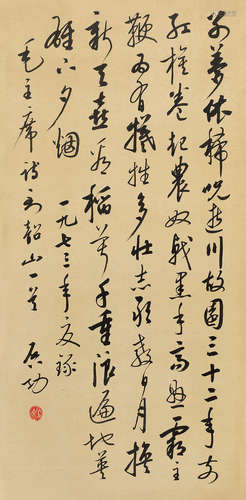 别梦依稀咒逝川故园三十二年前
红旗卷起农奴戟黑手高悬霸主
鞭为有牺牲多壮志敢教日月换
新天喜看稻菽千重浪遍地英
雄下夕烟
毛主席诗到韶山一首
一九七三年夏录
启功